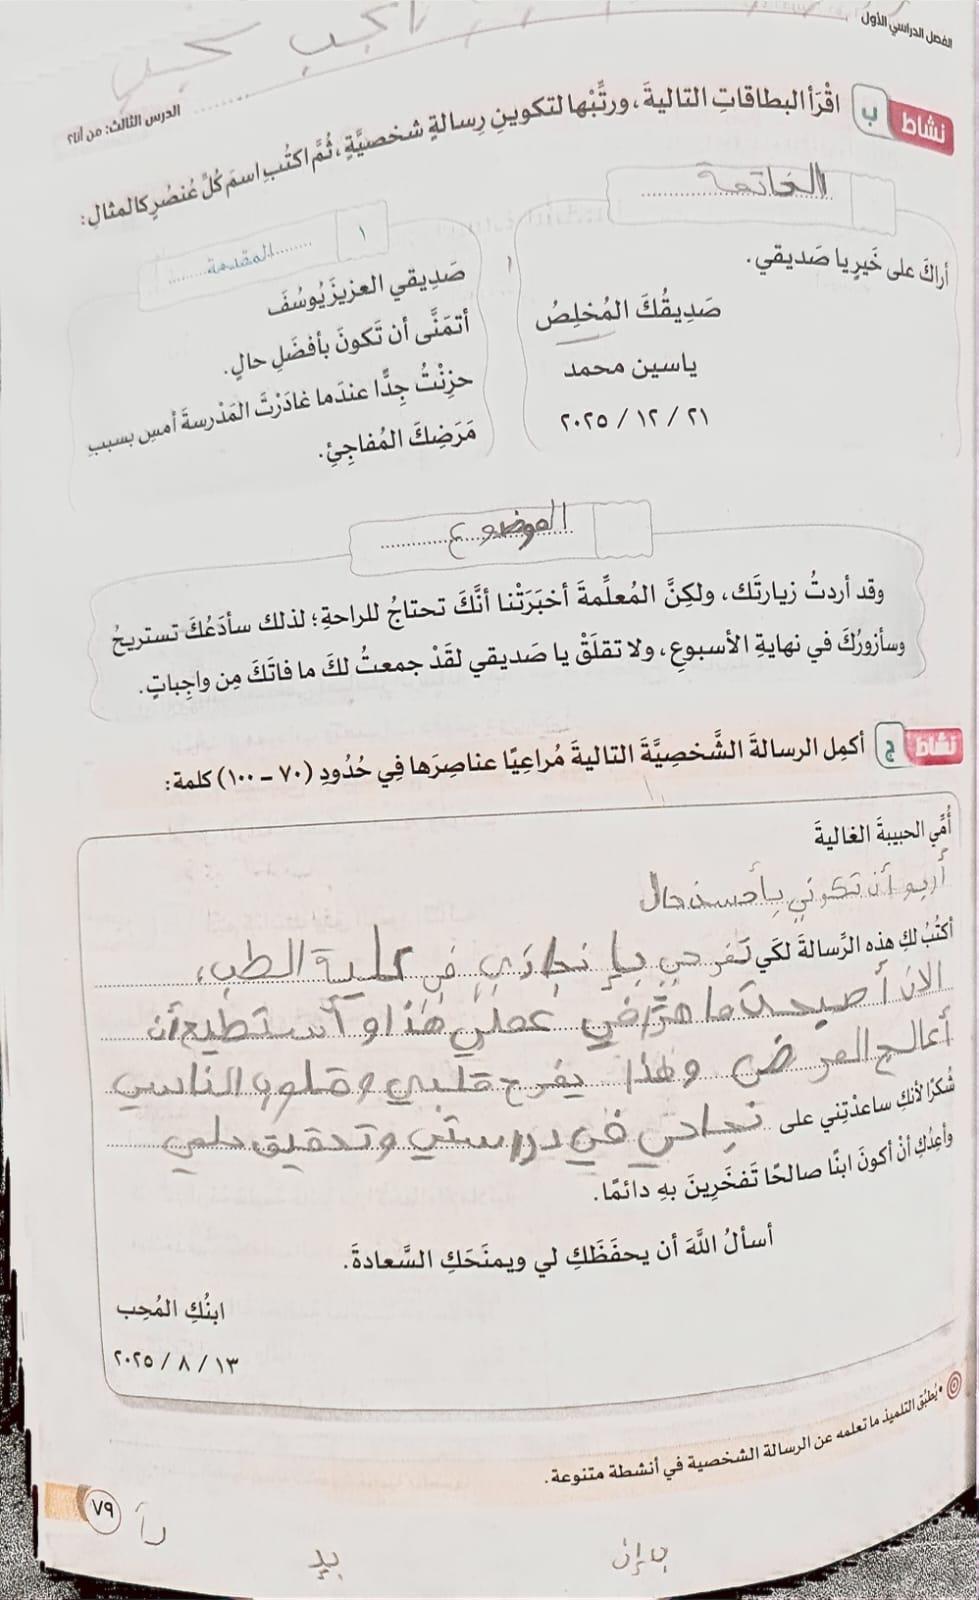 الفصل الدراسي الأول
الدرس الثالث: من أنا؟
نشاط ب اقْرَأ البطاقاتِ التاليةَ، ورتِّبْها لتكوينِ رِسالةٍ شخصيَّةٍ، ثُمَّ اكتُبِ اسمَ كُلِّ عُنصُرٍ كالمثالِ:
الخاتمة
أراكَ على خَيرٍ يا صَديقي.
صَدِيقُكَ المُخلِصُ
ياسين محمد
٢١ / ١٢ / ٢٠٢٥
١ المقدمة
صَدِيقي العزيزَ يُوسُفَ
أتمَنَّى أن تَكونَ بأفضَلِ حالٍ.
حزِنْتُ جِدًّا عندَما غادَرْتَ المَدْرسةَ أمسِ بسببِ
مَرَضِكَ المُفاجِئِ.
الموضوع
وقد أردتُ زيارتَك، ولكِنَّ المُعلِّمةَ أخبَرَتْنا أنَّكَ تحتاجُ للراحةِ؛ لذلك سأدَعُكَ تستريحُ
وسأزورُكَ في نهايةِ الأسبوعِ، ولا تقلَقْ يا صَديقي لقَدْ جمعتُ لكَ ما فاتَكَ مِن واجِباتٍ.
نشاط ج أكمِل الرسالةَ الشَّخصِيَّةَ التاليةَ مُراعِيًا عناصِرَها فِي حُدُودِ (٧٠ – ١٠٠) كلمة:
أُمِّي الحبيبةَ الغاليةَ
أن تكوني بأحسن حال
أكتُبُ لكِ هذه الرِّسالةَ لكَي تفرحي في كلية الطب،
الآن أصبحت في عملي هذا و أستطيع أن
أعالج المرض وهذا يفرح قلبي وقلوب الناس
شُكرًا لأنكِ ساعدْتِني على نجاحي في دراستي وتحقيق حلمي
وأعِدُكِ أنْ أكونَ ابنًا صالحًا تَفخَرِينَ بهِ دائمًا.
أسألُ اللَّهَ أن يحفَظَكِ لي ويمنَحَكِ السَّعادةَ.
ابنُكِ المُحِب
١٣ / ٨ / ٢٠٢٥
• يُطبِّق التلميذ ما تعلمه عن الرسالة الشخصية في أنشطة متنوعة.
٧٩